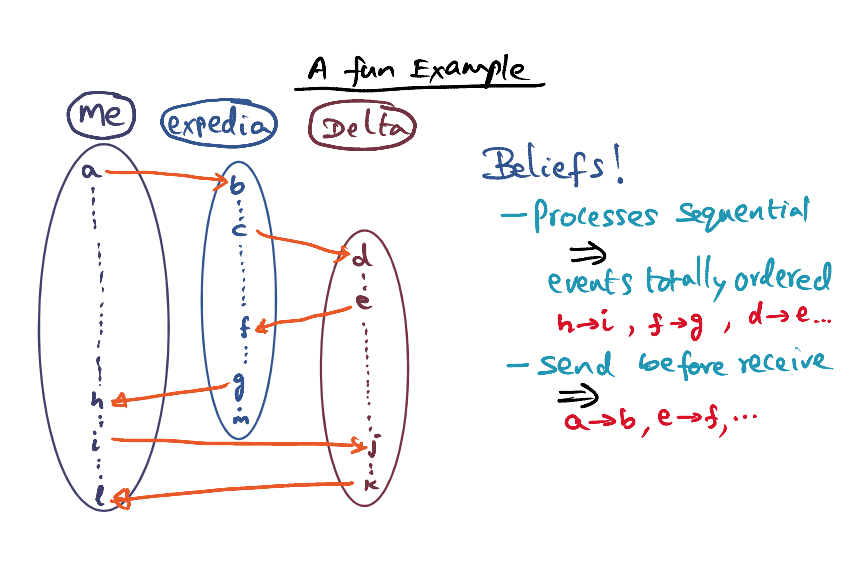 A fun Example
Me
expedia
Delta
a
b
c
d
e
f
g
h
m
i
j
k
l
Beliefs!
— Processes sequential
⇒
events totally ordered
h→i, f→g, d→e...
— send before receive
⇒
a→b, e→f, ...